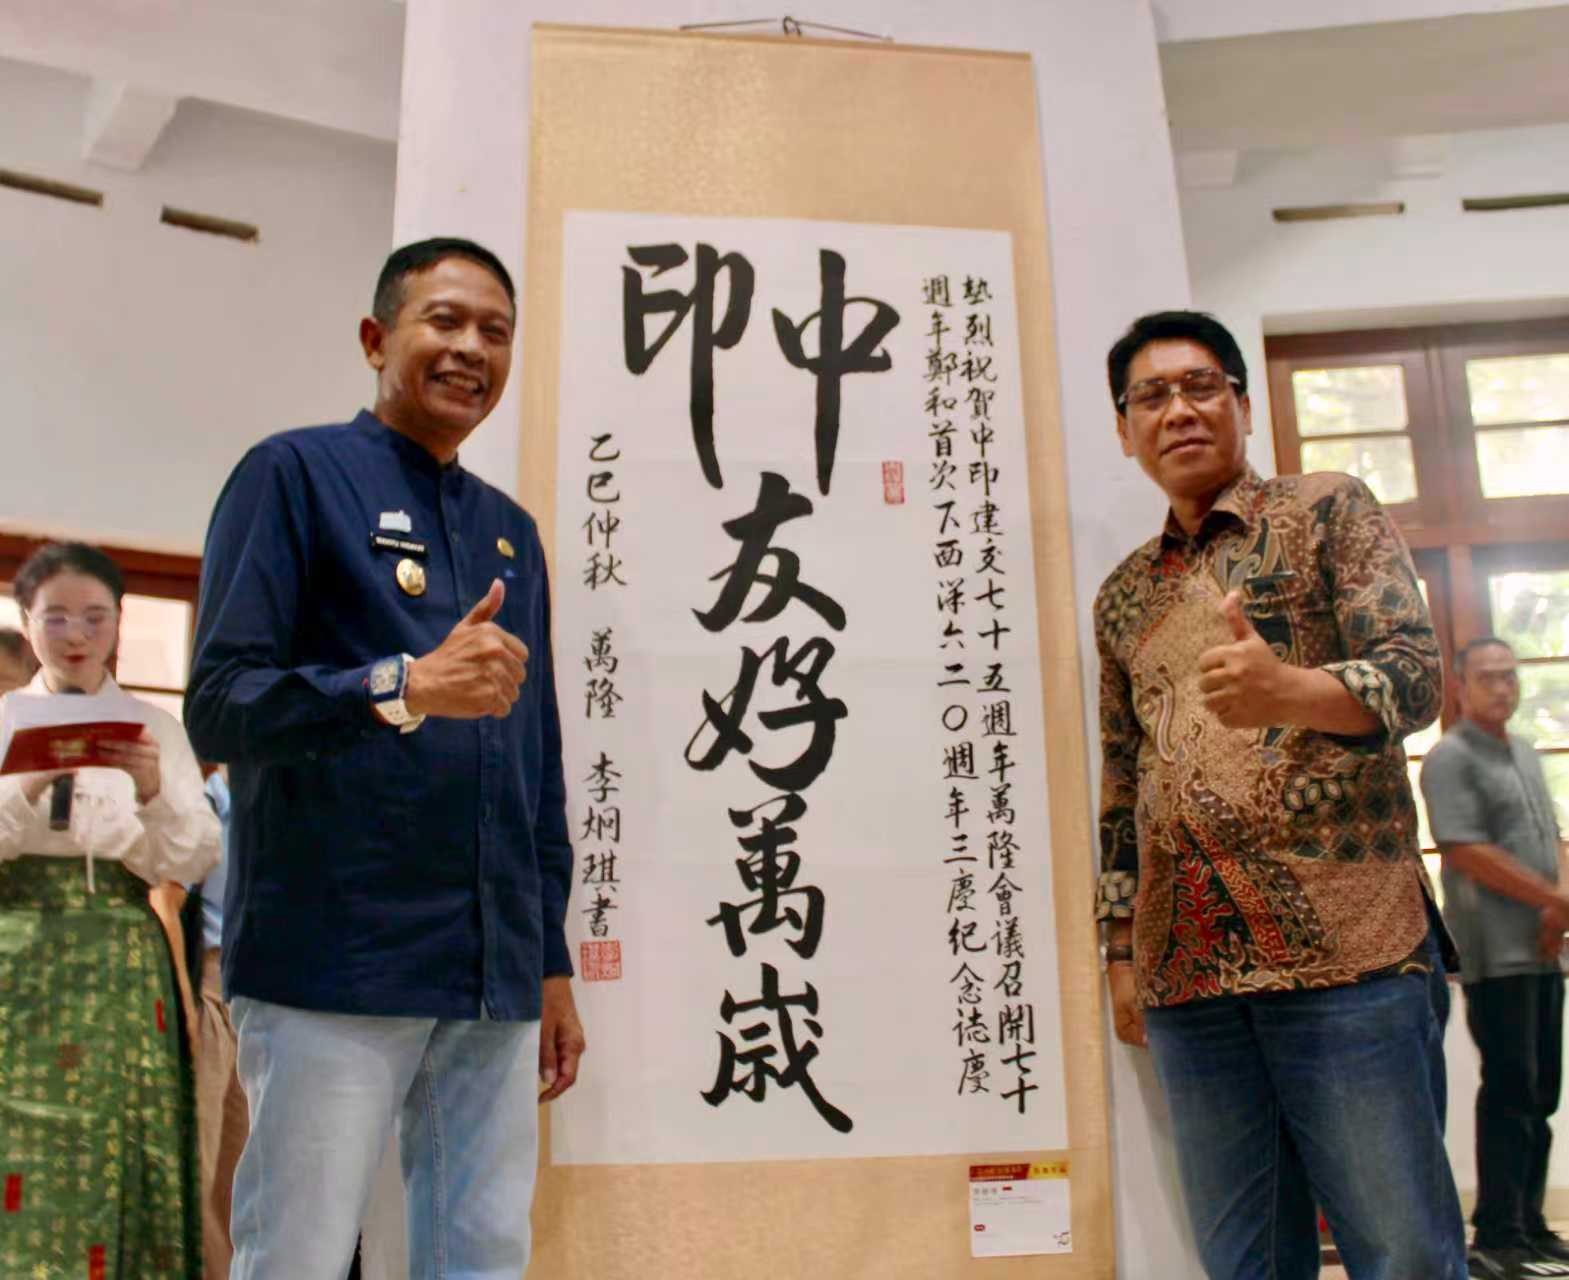 熱烈祝賀中印建交七十五週年萬隆會議召開七十
週年鄭和首次下西洋六二〇週年三慶紀念誌慶
中印
友好萬歲
乙巳仲秋 萬隆 李炯琪書